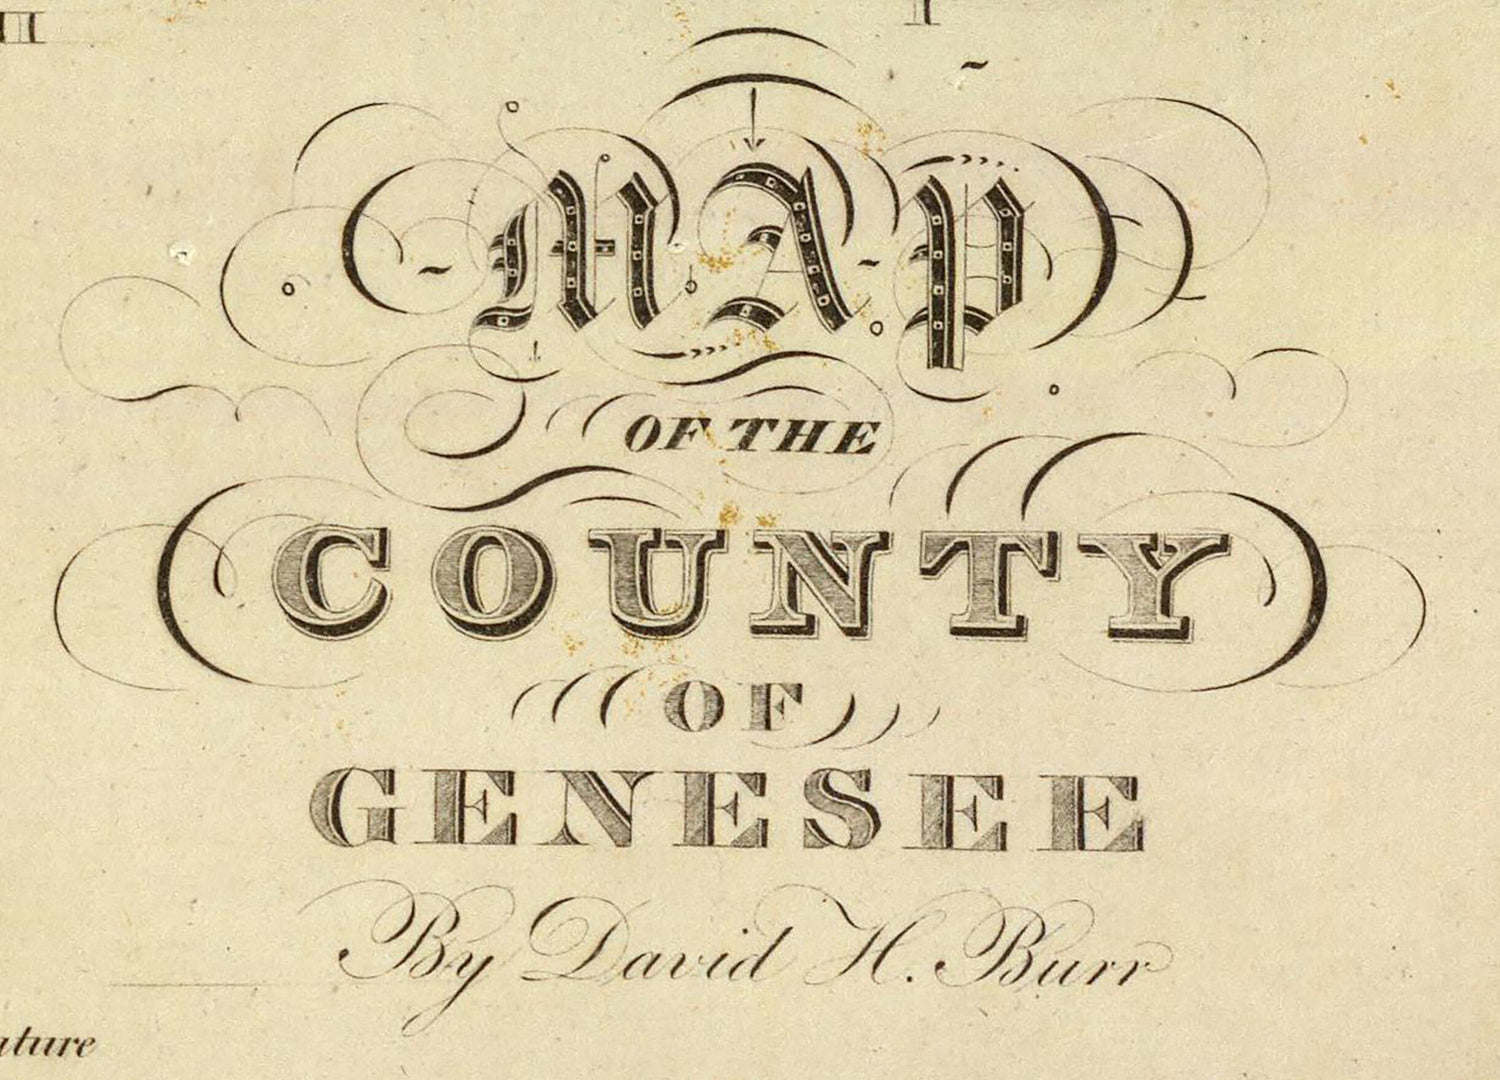 II I
MAP
OF THE
COUNTY
OF
GENESEE
By David H. Burr
ature